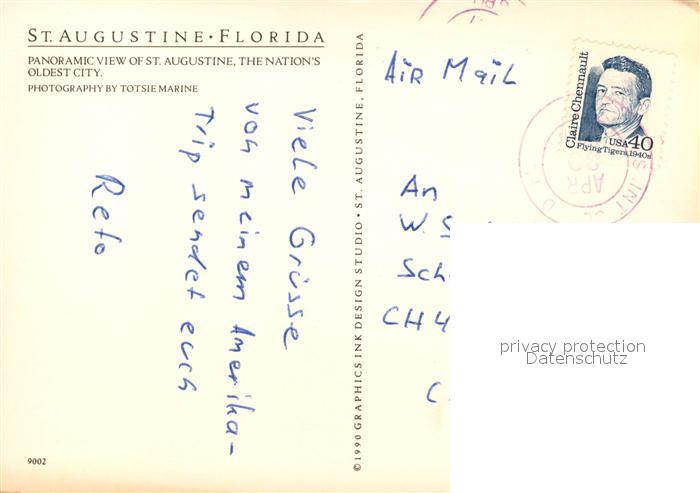 ST. AUGUSTINE • FLORIDA
PANORAMIC VIEW OF ST. AUGUSTINE, THE NATION'S
OLDEST CITY.
PHOTOGRAPHY BY TOTSIE MARINE
Viele Grüsse
von meinem Amerika-
Trip sendet euch
Reto
9002
© 1990 GRAPHICS INK DESIGN STUDIO • ST. AUGUSTINE, FLORIDA
Air Mail
Claire Chennault
USA 40
Flying Tigers, 1940s
APR
30
An
W. S
Sch
CH 4
C
privacy protection
Datenschutz